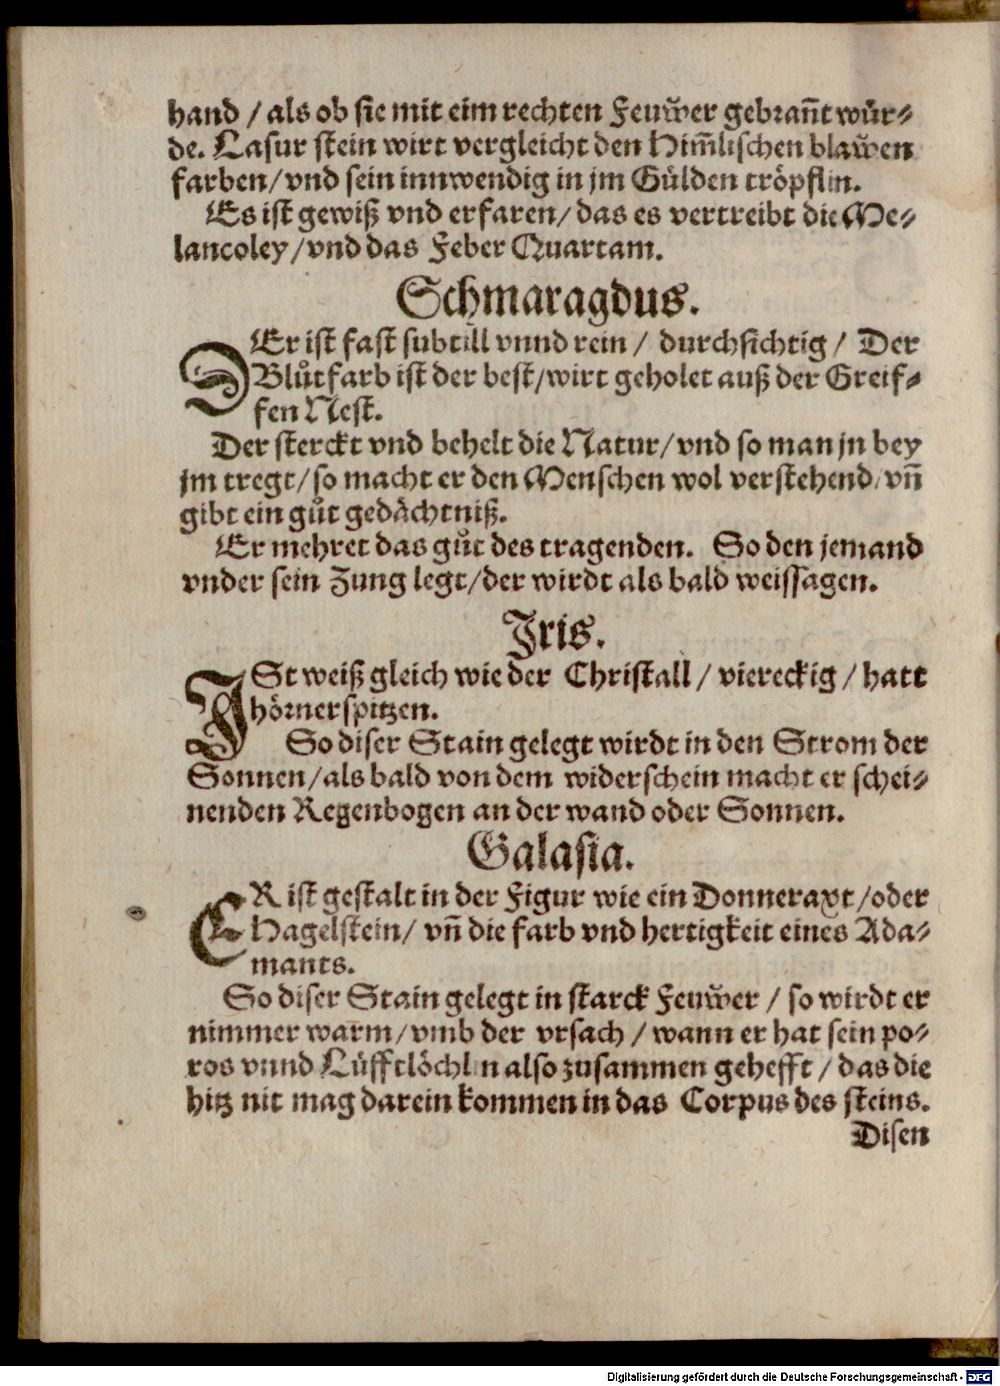 hand / als ob sie mit eim rechten Feuͤwer gebrañt wür⸗
de. Lasur stein wirt vergleicht den Him̃lischen blaͤwen
farben/ vnd sein innwendig in jm Gülden tröpflin.
Es ist gewiß vnd erfaren/ das es vertreibt die Me⸗
lancoley/ vnd das Feber Quartam.
Schmaragdus.
DEr ist fast subtill vnnd rein / durchsichtig / Der
Bluͦtfarb ist der best/ wirt geholet auß der Greif⸗
fen Nest.
Der sterckt vnd behelt die Natur/ vnd so man jn bey
jm tregt/ so macht er den Menschen wol verstehend/ vñ
gibt ein guͦt gedächtniß.
Er mehret das guͦt des tragenden. So den jemand
vnder sein Zung legt/ der wirdt als bald weissagen.
Iris.
ISt weiß gleich wie der Christall / viereckig / hatt
hörnerspitzen.
So diser Stain gelegt wirdt in den Strom der
Sonnen/ als bald von dem widerschein macht er schei⸗
nenden Regenbogen an der wand oder Sonnen.
Galasia.
ER ist gestalt in der Figur wie ein Donneraxt / oder
Hagelstein/ vñ die farb vnd hertigkeit eines Ada⸗
mants.
So diser Stain gelegt in starck Feuͤwer / so wirdt er
nimmer warm/ vmb der vrsach / wann er hat sein po⸗
ros vnnd Lüfftlöchlin also zusammen gehefft / das die
hitz nit mag darein kommen in das Corpus des steins.
Disen
Digitalisierung gefördert durch die Deutsche Forschungsgemeinschaft - DFG